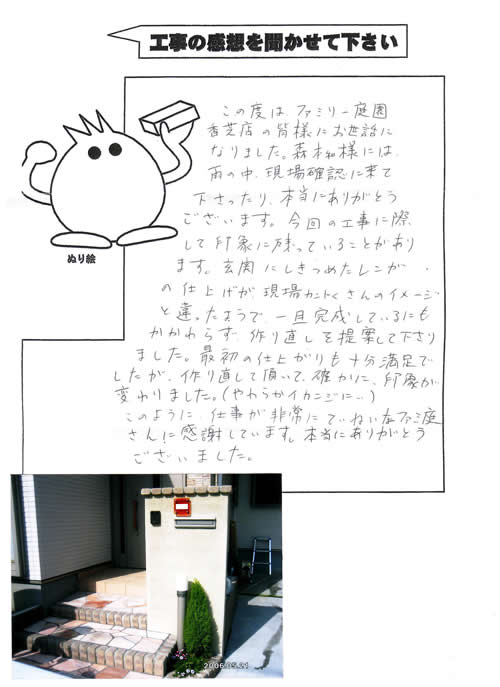 工事の感想を聞かせて下さい
この度は、ファミリー庭園
香芝店の皆様にお世話に
なりました。森本様には、
雨の中、現場確認に来て
下さったり、本当にありがとう
ございます。今回の工事に際
して印象に残っていることがあり
ます。玄関にしきつめたレンガ
の仕上げが現場カントクさんのイメージ
と違ったようで一旦完成しているにも
かかわらず、作り直しを提案して下さり
ました。最初の仕上がりも十分満足で
したが、作り直して頂いて、確かに、印象が
変わりました。(やわらかイカンジに…)
このように、仕事が非常にていねいなファミ庭
さん!に感謝しています。本当にありがとう
ございました。
ぬり絵
2006.05.21